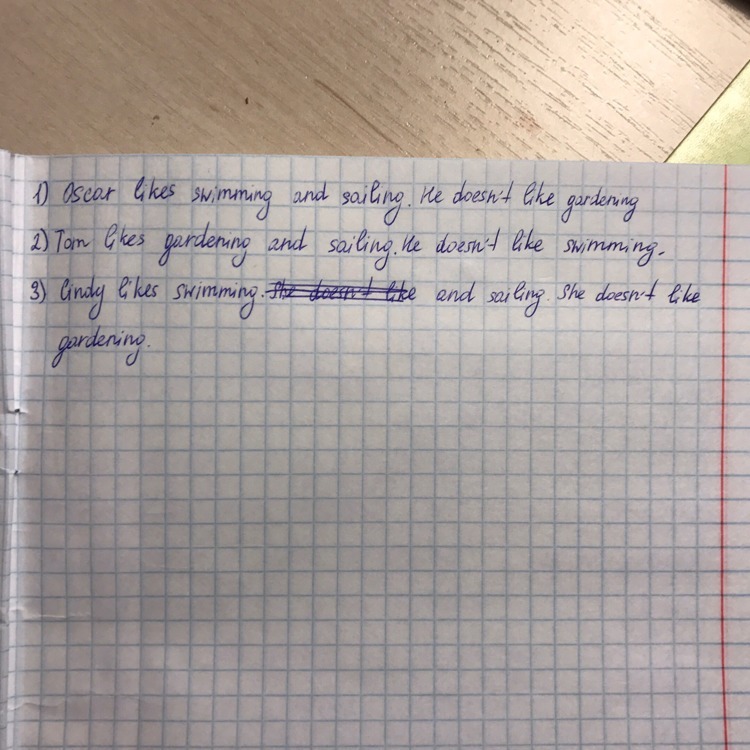 1) Oscar likes swimming and sailing. He doesn't like gardening
2) Tom likes gardening and sailing. He doesn't like swimming.
3) Cindy likes swimming. She doesn't like and sailing. She doesn't like
gardening.